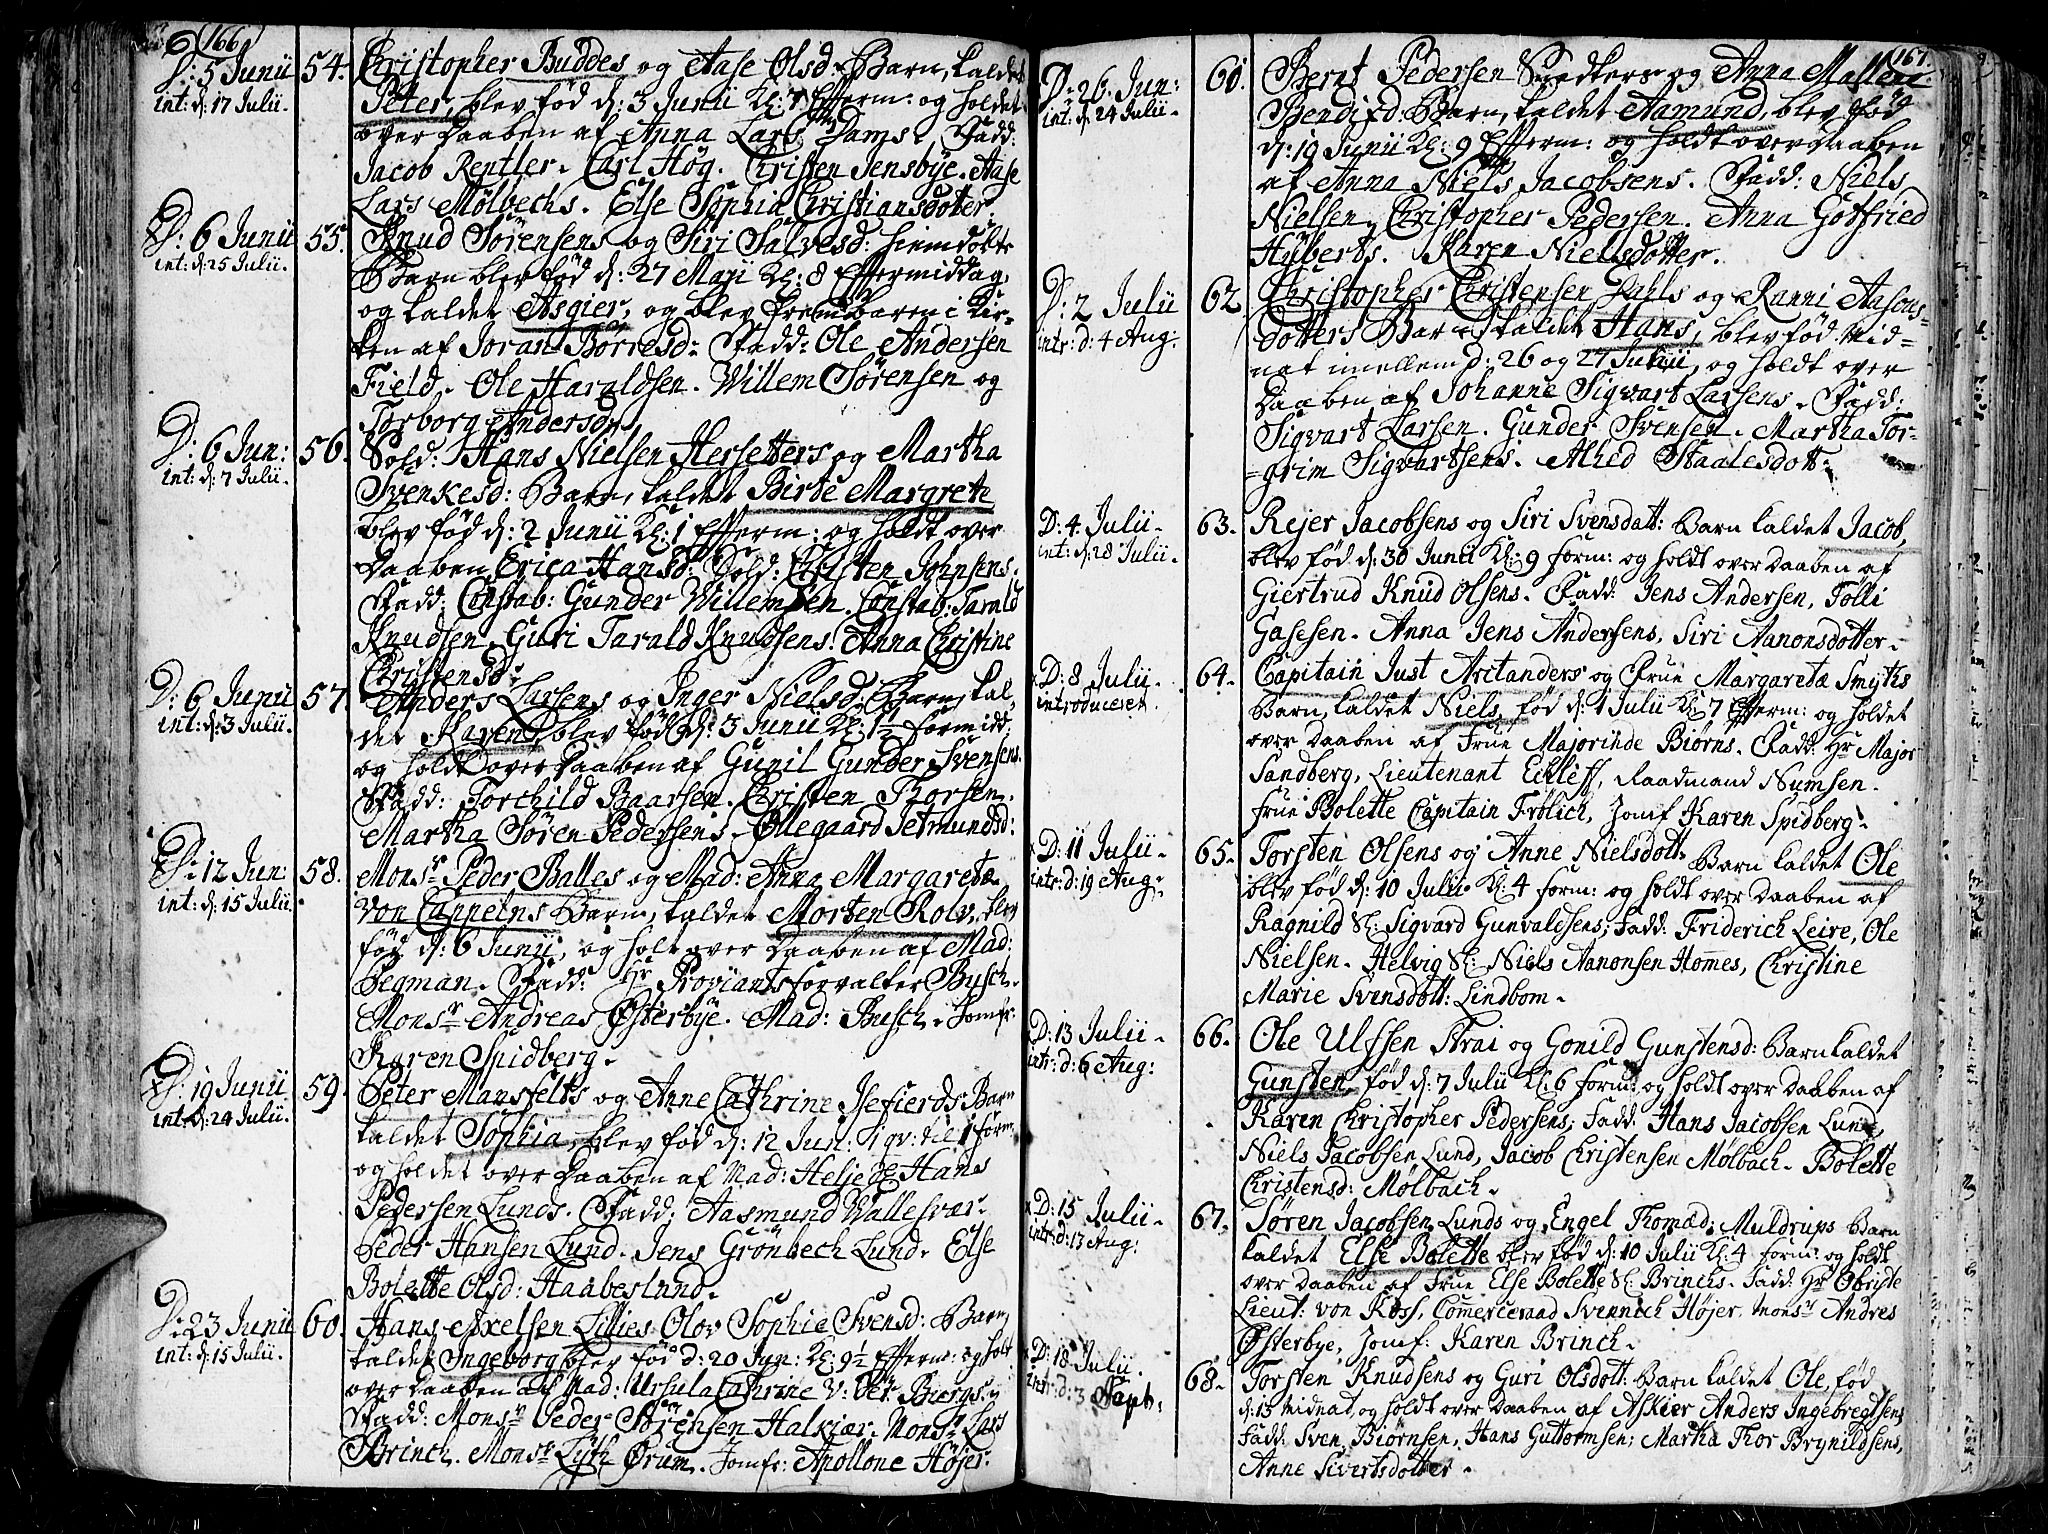 166.
D: 5 Junii
int: d: 17 Julii.
54.
Christopher Buddes og Aase Olsd: Barn, kaldet
Peter, blev fød d: 3 Junii Kl: 7 Efterm: og holdet
over Daaben af Anna Lars Dams. Fadd:
Jacob Rentler. Carl Høg. Christen Jensbye. Aase
Lars Mølbechs. Else Sophia Christiansdotter.
D: 6 Junii
int: d: 25 Julii.
55.
Knud Sørensens og Siri Salvesd: hiemdøbte
Barn blev fød d: 27 Maji Kl: 8 Eftermiddag,
og kaldet Asgier, og blev frembaaren i Kir-
ken af Joran Börresd: Fadd: Ole Andersen
Field. Ole Haraldsen. Willem Sørensen og
Torborg Andersd:
D: 6 Jun:
int: d: 7 Julii.
56.
Sold: Hans Nielsen Hersetters og Martha
Svenkesd: Barn, kaldet Birte Margrete
blev fød d: 2 Junii Kl: 1 Efterm: og holdt over
Daaben Erica Hansd: Sold: Christen Johnsens.
Fadd: Constab: Gunder Willemsen. Constab: Tarald
Knudsen. Guri Tarald Knudsens. Anna Christine
Christensd:
D: 6 Junii
int: d: 3 Julii.
57.
Anders Larsens og Inger Nielsd: Barn, kal-
det Karen blev fød d: 3 Junii Kl: 1½ formidd:
og holdt over Daaben af Gunil Gunder Svensens.
Fadd: Torchild Baarsen. Christen Thorsen.
Martha Søren Pedersens. Ollegaard Jetmundsd:
D: 12 Jun:
int: d: 15 Julii.
58.
Monsr Peder Balles og Mad: Anna Margaretæ
Von Cappelns Barn, kaldet Morten Rolv, blev
fød d: 6 Junii, og holt over Daaben af Mad:
Segman. Fadd: Hr Proviantsforvalter Bysch.
Monsr Andreas Østerbye. Mad: Busch. Jomfr:
Karen Spidberg.
D: 19 Junii
int: d: 24 Julii.
59.
Peter Mansfelts og Anne Cathrine Isefierds Barn
kaldet Sophia, blev fød d: 12 Jun: 1 qv: til 1 form:
og holdet over Daaben af Mad: Helje Hans
Pedersen Lunds. Fadd: Aasmund Wallesvær.
Peder Hansen Lund. Jens Grönbech Lund. Else
Bolette Olsd: Haabesland.
D: 23 Junii
int: d: 15 Julii.
60.
Hans Axelsen Lillies Olov Sophie Svensd: Barn,
kaldet Ingeborg blev fød d: 20 Jun: Kl: 9½ Efterm: og holt
over Daaben af Mad: Ursula Cathrine V: Pet: Biergs.
Fadd: Monsr Peder Sörensen Halkiær. Monsr Lars
Brinch. Monsr Lyth Ørum. Jomfr: Apollone Höjer.
167.
D: 26 Jun:
int: d: 24 Julii.
60.
Bernt Pedersen Snedkers og Anna Mallene
Bendixd: Barn, kaldet Aamund, blev fød
d: 19 Junii Kl: 9 Efterm: og holdt over Daaben
af Anna Niels Jacobsens. Fadd: Niels
Nielsen. Christopher Pedersen. Anna Gotfried
Hyberts. Karen Nielsdotter.
D: 2 Julii
intr: d: 4 Aug:
62
Christopher Christensen Dahls og Ranni Aasons-
dotters Barn, kaldet Hans, blev fød Mid-
nat imellem d: 26 og 27 Junii, og holdt over
Daaben af Johanne Sigvart Larsens. Fadd:
Sigvart Larsen. Gunder Svensen. Martha Tor-
grim Sigvartsens. Alhed Staalesdott:
D: 4 Julii.
int: d: 28 Julii.
63.
Rejer Jacobsens og Siri Svensdatt: Barn kaldet Jacob,
blev fød d: 30 Junii Kl: 9 form: og holdt over Daaben af
Giertrud Knud Olsens. Fadd: Jens Andersen, Tolli
Gasesen. Anna Jens Andersens, Siri Aanonsdotter.
D: 8 Julii.
introduceret.
64.
Capitain Just Arctanders og Frue Margaretæ Smyths
Barn, kaldet Niels, fød d: 1 Julii Kl: 7 Efterm: og holdet
over Daaben af Frue Majorinde Biørns. Fadd: Hr Major
Sandberg, Lieutenant Eckleff, Raadmand Numsen.
frue Bolette Capitain Frölich, Jomf Karen Spidberg.
x D: 11 Julii.
intr: d: 19 Aug:
65.
Torsten Olsens og Anne Nielsdott: Barn kaldet Ole
blev fød d: 10 Julii. Kl: 4 form: og holdt over Daaben af
Ragnild Sl: Sigvard Gunvaldsens; Fadd: Friderich Leire, Ole
Nielsen. Helvig Sl: Niels Aanonsen Homes, Christine
Marie Svensdott: Lindbom.
D: 13 Julii.
intr: d: 6 Aug:
66.
Ole Ulfsen Strai og Gonild Gunstensd: Barn kaldet
Gunsten, fød d: 7 Julii Kl: 6 form: og holdt over Daaben af
Karen Christopher Pedersens; Fadd: Hans Jacobsen Lund,
Niels Jacobsen Lund, Jacob Christensen Mølbach. Bolette
Christensd: Mølbach.
x D: 15 Julii.
intr: d: 13 Aug:
67.
Søren Jacobsen Lunds og Engel Thomæd: Muldrups Barn
kaldet Else Bolette blev fød d: 10 Julii Kl: 4 form: og holdt
over Daaben af Frue Else Bolette Sl: Brinchs. Fadd: Hr Obriste
Lieut: von Koss, Comerceraad Svennich Højer, Monsr Andres
Østerbye, Jomf: Karen Brinch.
x D: 18 Julii.
intr: d: 3 Sept:
68.
Torsten Knudsens og Guri Olsdott: Barn kaldet Ole, fød
d: 15 Midnat, og holdt over Daaben af Askier Anders Ingebregtsens
Fadd: Sven Biörnsen, Hans Guttormsen; Martha Thor Brynildsens,
Anne Sivertsdotter.